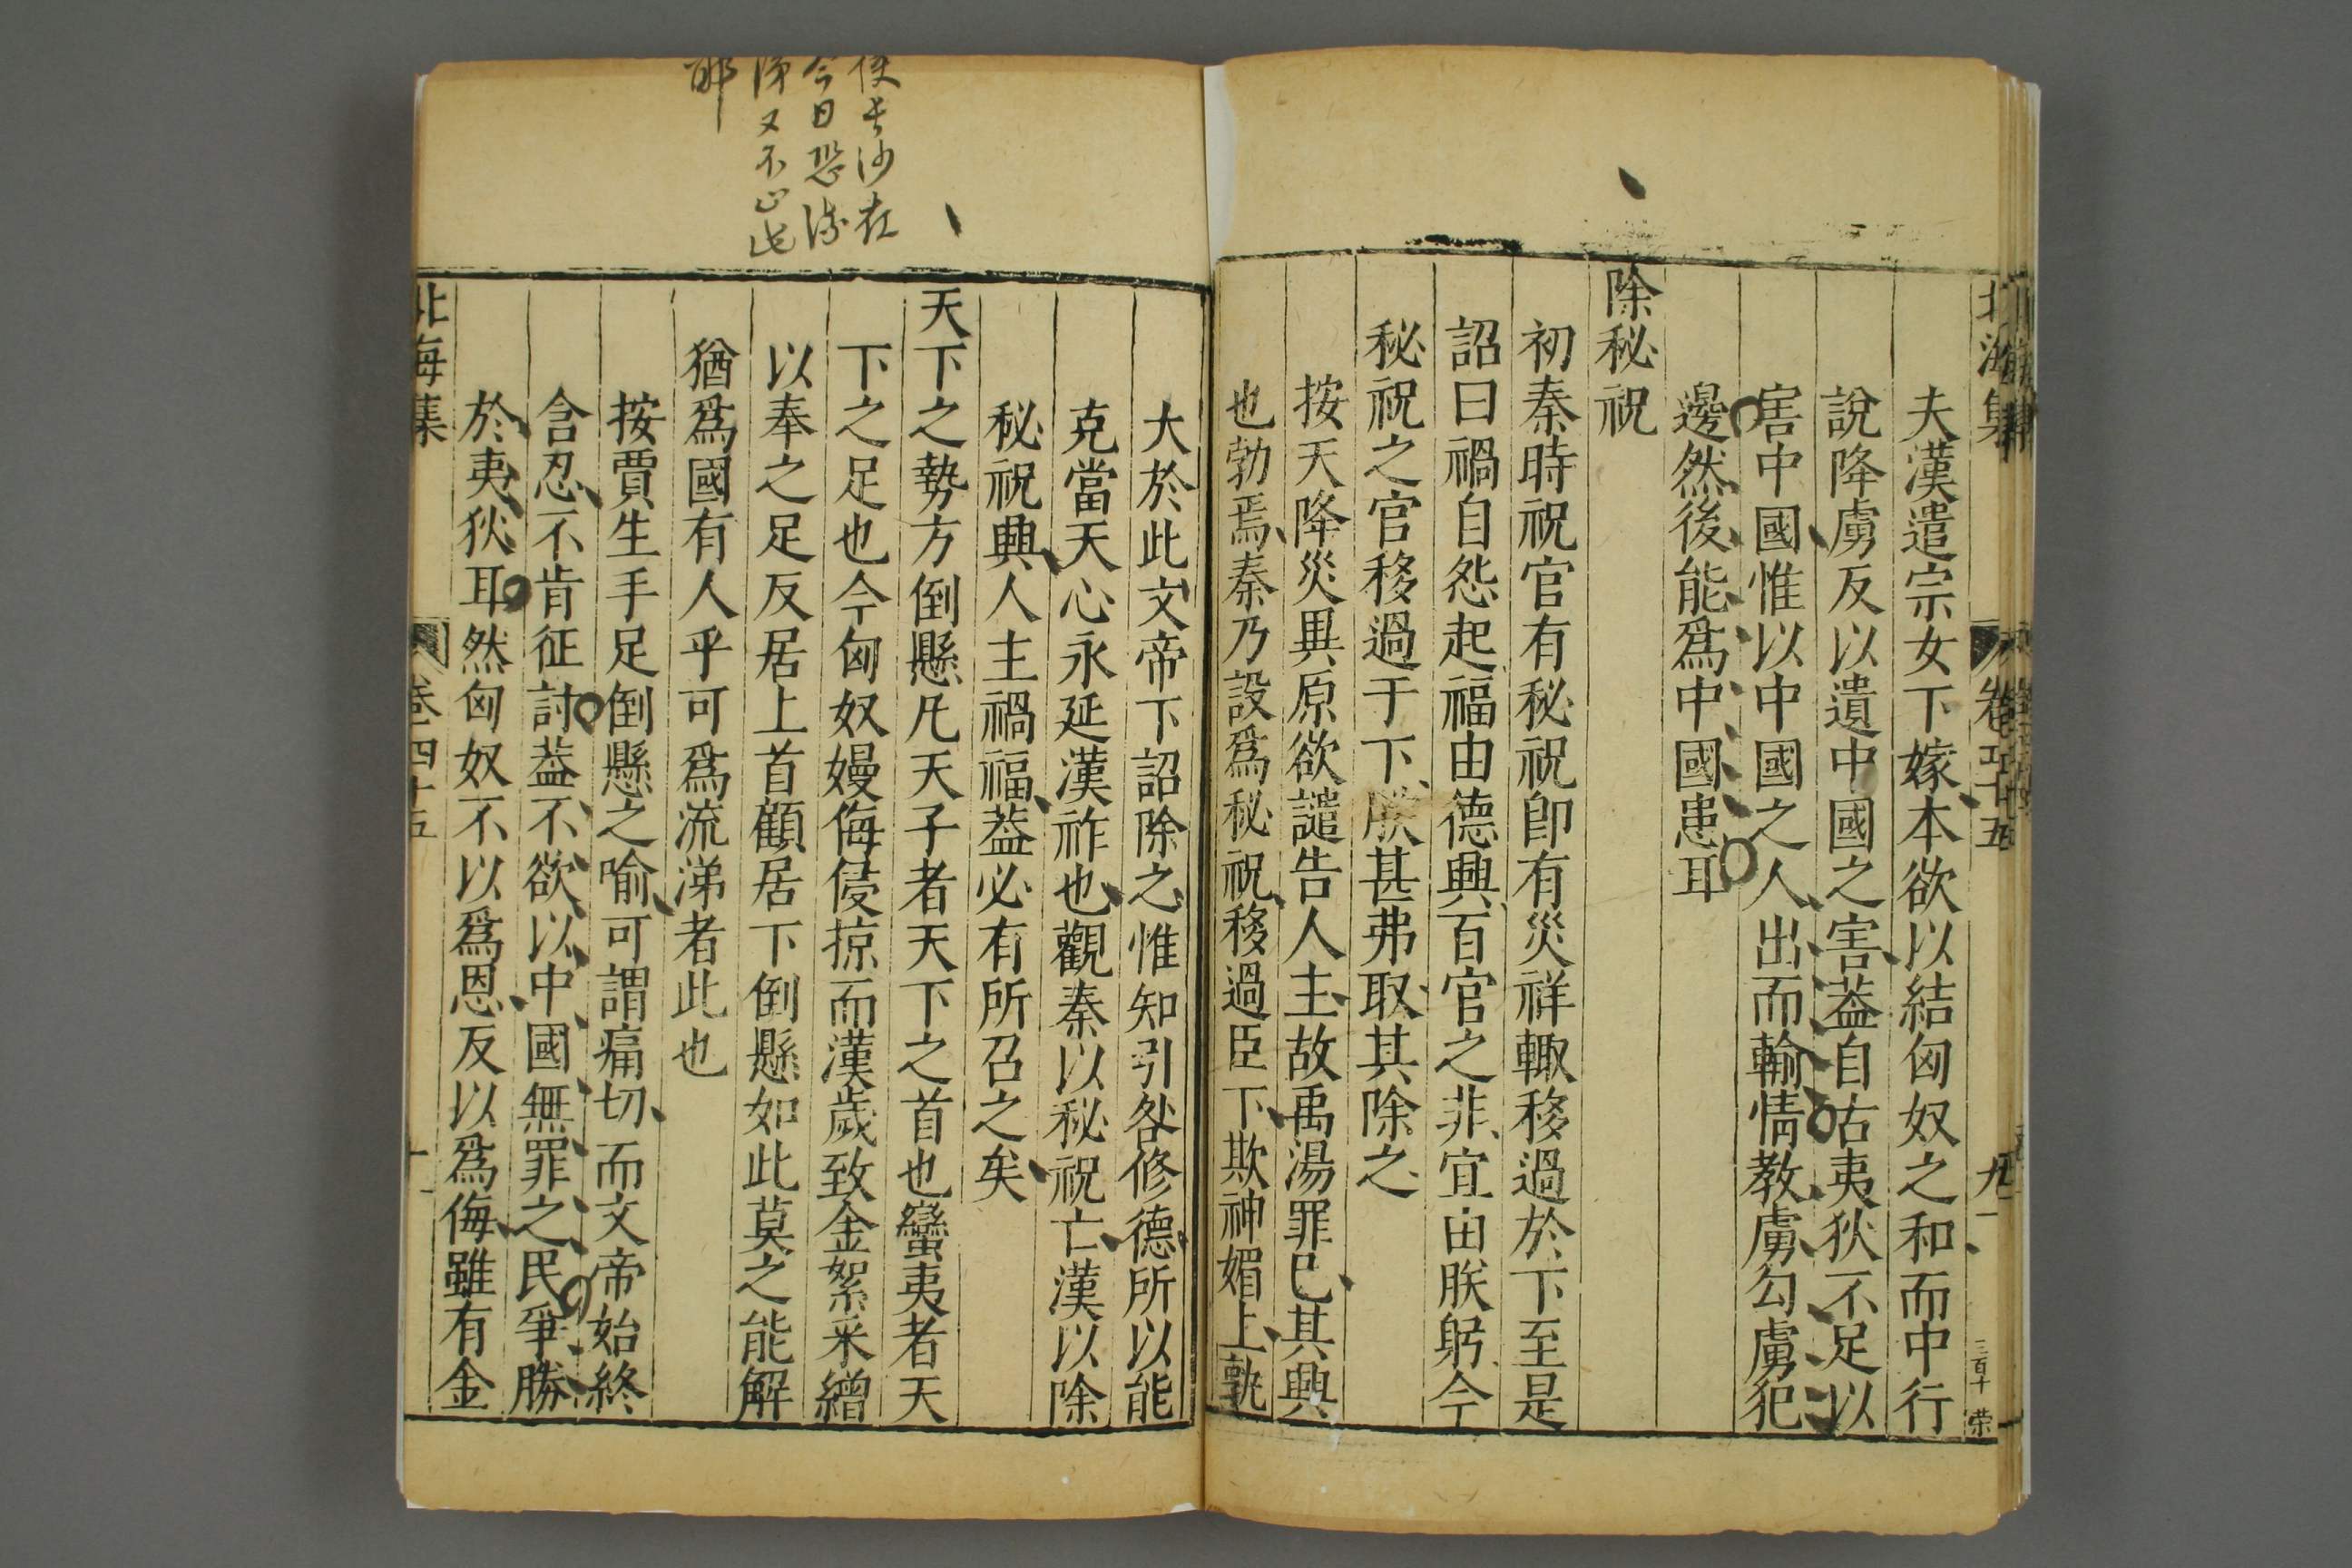 北海集
卷四十五
九
三百十
荣
夫漢遣宗女下嫁本欲以結匈奴之和而中行
說降虜反以遺中國之害葢自古夷狄不足以
害中國惟以中國之人出而輸情教虜勾虜犯
邊然後能爲中國患耳
除秘祝
初秦時祝官有秘祝卽有災祥輙移過於下至是
詔曰禍自怨起福由德興百官之非宜由朕躬今
秘祝之官移過于下朕甚弗取其除之
按天降災異原欲譴告人主故禹湯罪已其興
也勃焉秦乃設爲秘祝移過臣下欺神媚上孰
大於此文帝下詔除之惟知引咎修德所以能
克當天心永延漢祚也觀秦以秘祝亡漢以除
秘祝興人主禍福葢必有所召之矣
天下之勢方倒懸凡天子者天下之首也蠻夷者天
下之足也今匈奴嫚侮侵掠而漢歲致金絮采繒
以奉之足反居上首顧居下倒懸如此莫之能解
猶爲國有人乎可爲流涕者此也
按賈生手足倒懸之喻可謂痛切而文帝始終
含忍不肯征討葢不欲以中國無罪之民爭勝
於夷狄耳然匈奴不以爲恩反以爲侮雖有金
北海集
卷四十五
十
使長沙在
今日恐流
涕又不止此
耶